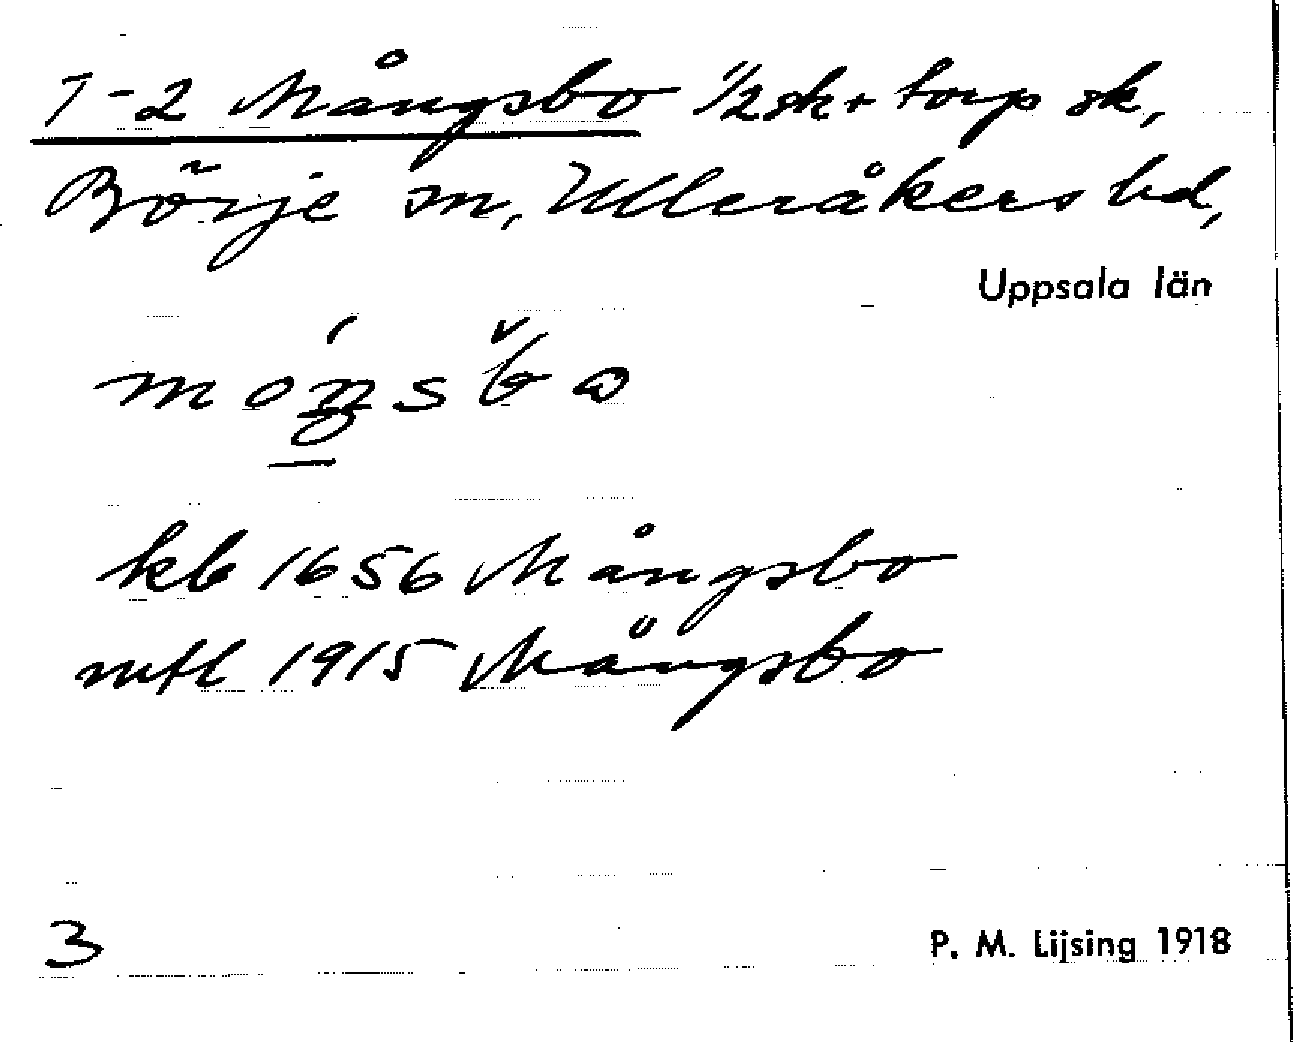 1-2 Mångsbo 1/2 sk + torp sk,
Börje sn, Ulleråkers hd,
Uppsala län
kb 1656 Mångsbo
mtl 1915 Mångsbo
3
P. M. Lijsing 1918